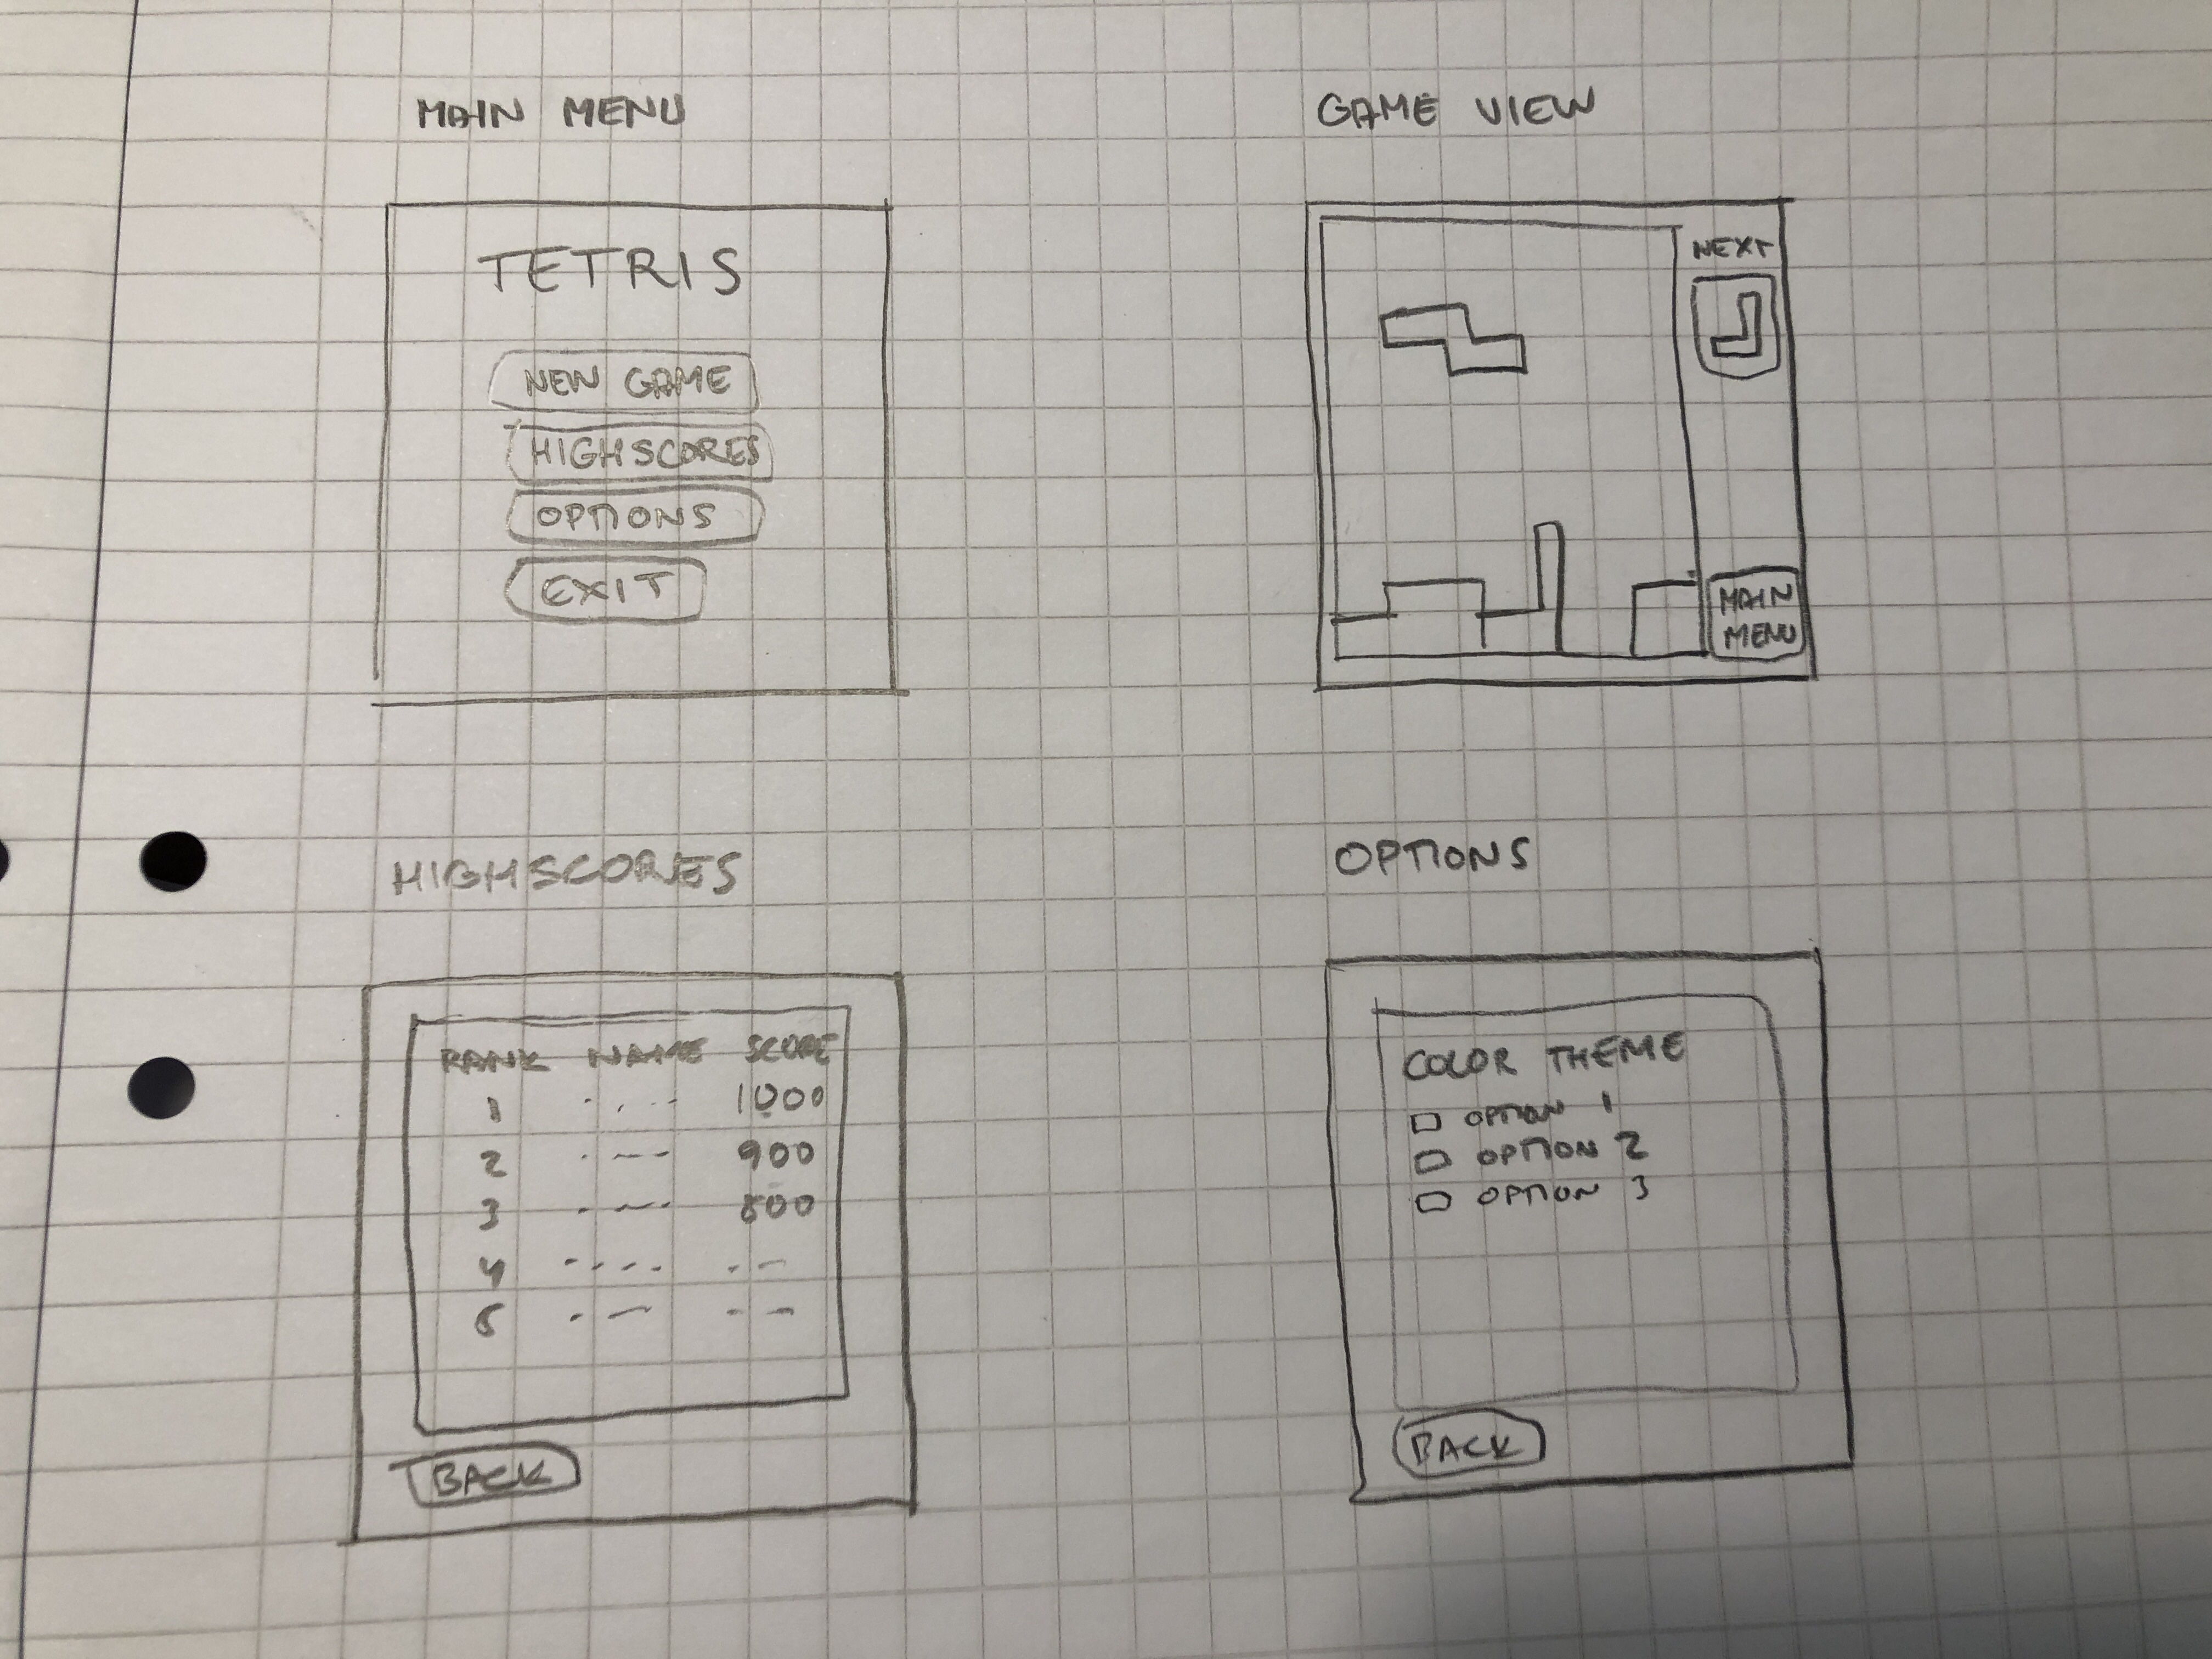 MAIN MENU
TETRIS
NEW GAME
HIGHSCORES
OPTIONS
EXIT
GAME VIEW
NEXT
MAIN
MENU
HIGHSCORES
RANK NAME SCORE
1 1000
2 900
3 800
4
5
BACK
OPTIONS
COLOR THEME
OPTION 1
OPTION 2
OPTION 3
BACK